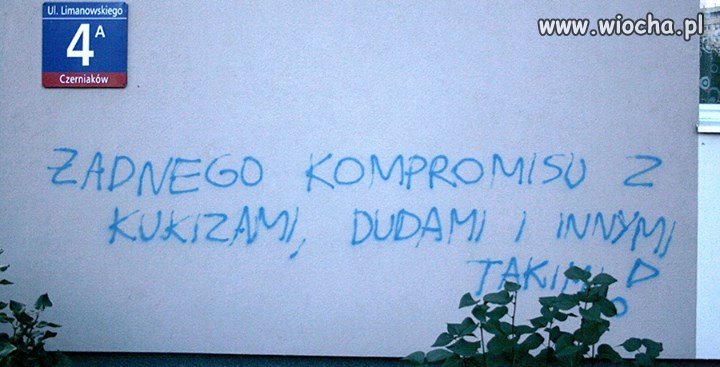 Ul. Limanowskiego
4A
Czerniaków
www.wiocha.pl
ŻADNEGO KOMPROMISU Z
KUKIZAMI, DUDAMI I INNYMI
TAKIMI!